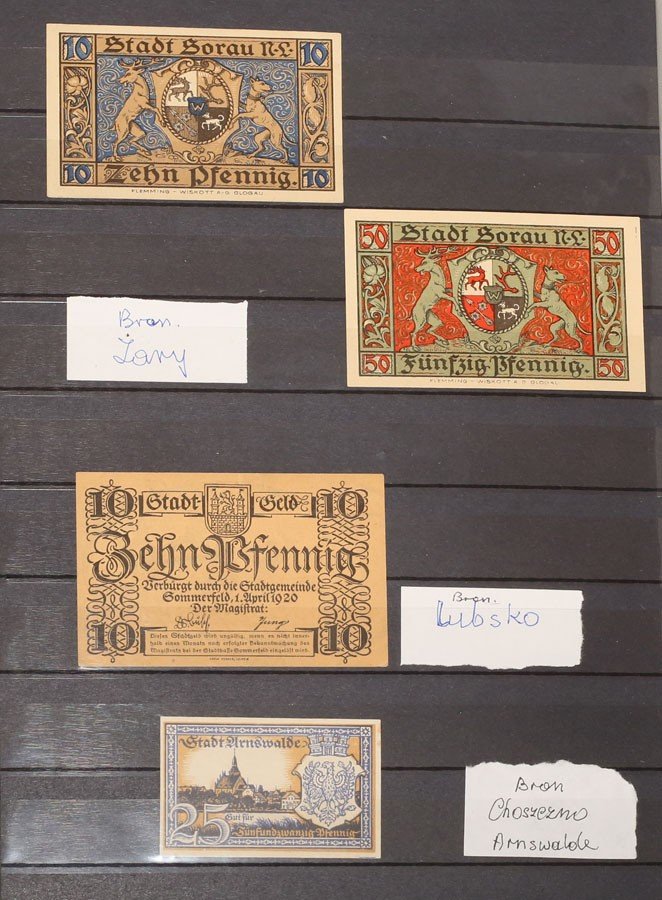 10 Stadt Sorau N-L. 10
10 Zehn Pfennig. 10
FLEMMING - WISKOTT A-G GLOGAU
50 Stadt Sorau N-L. 50
W
50 Fünfzig Pfennig. 50
FLEMMING - WISKOTT A-G GLOGAU
Bran.
Żary
10 Stadt Geld 10
Zehn Pfennig
Verbürgt durch die Stadtgemeinde
Sommerfeld, 1. April 1920
Der Magistrat:
10 10
Dieses Stadtgeld wird ungültig, wenn es nicht inner-
halb eines Monats nach erfolgter Bekanntmachung des
Magistrats bei der Stadtkasse Sommerfeld eingelöst wird.
Bran.
Lubsko
Stadt Arnswalde
25 Gut für
Fünfundzwanzig Pfennig
Bran
Choszczno
Arnswalde